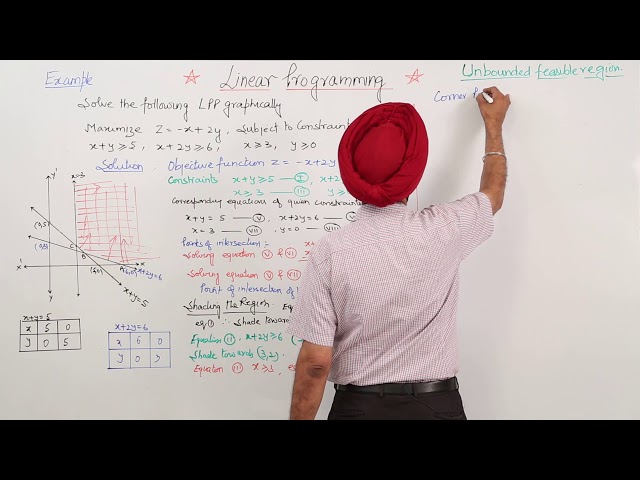 Example
☆ Linear Programming ☆
Unbounded feasible region.
Corner
Solve the following LPP graphically
Maximize Z = -x + 2y, Subject to Constraint
x+y ≥ 5, x + 2y ≥ 6, x ≥ 3, y ≥ 0
Solution Objective function Z = -x + 2y
Constraints x+y ≥ 5 — I
x ≥ 3 — III
Corresponding equations of given constraint
x+y = 5 — V, x+2y=6
x = 3 — VII, y=0 — VIII
Points of intersection :-
Solving equation V & VI
Solving equation V & VII
Point of intersection of
Shading the Region
eq I ∴ Shade toward
Equation II, x+2y ≥ 6
Shade towards (3,2).
Equation III x ≥ 3,
y'
x=3
(0,5)
(0,3)
C
B
x'
x
(5,0)
(6,0)
x+2y=6
x+y=5
y
x+y=5
x 5 0
y 0 5
x+2y=6
x 6 0
y 0 3